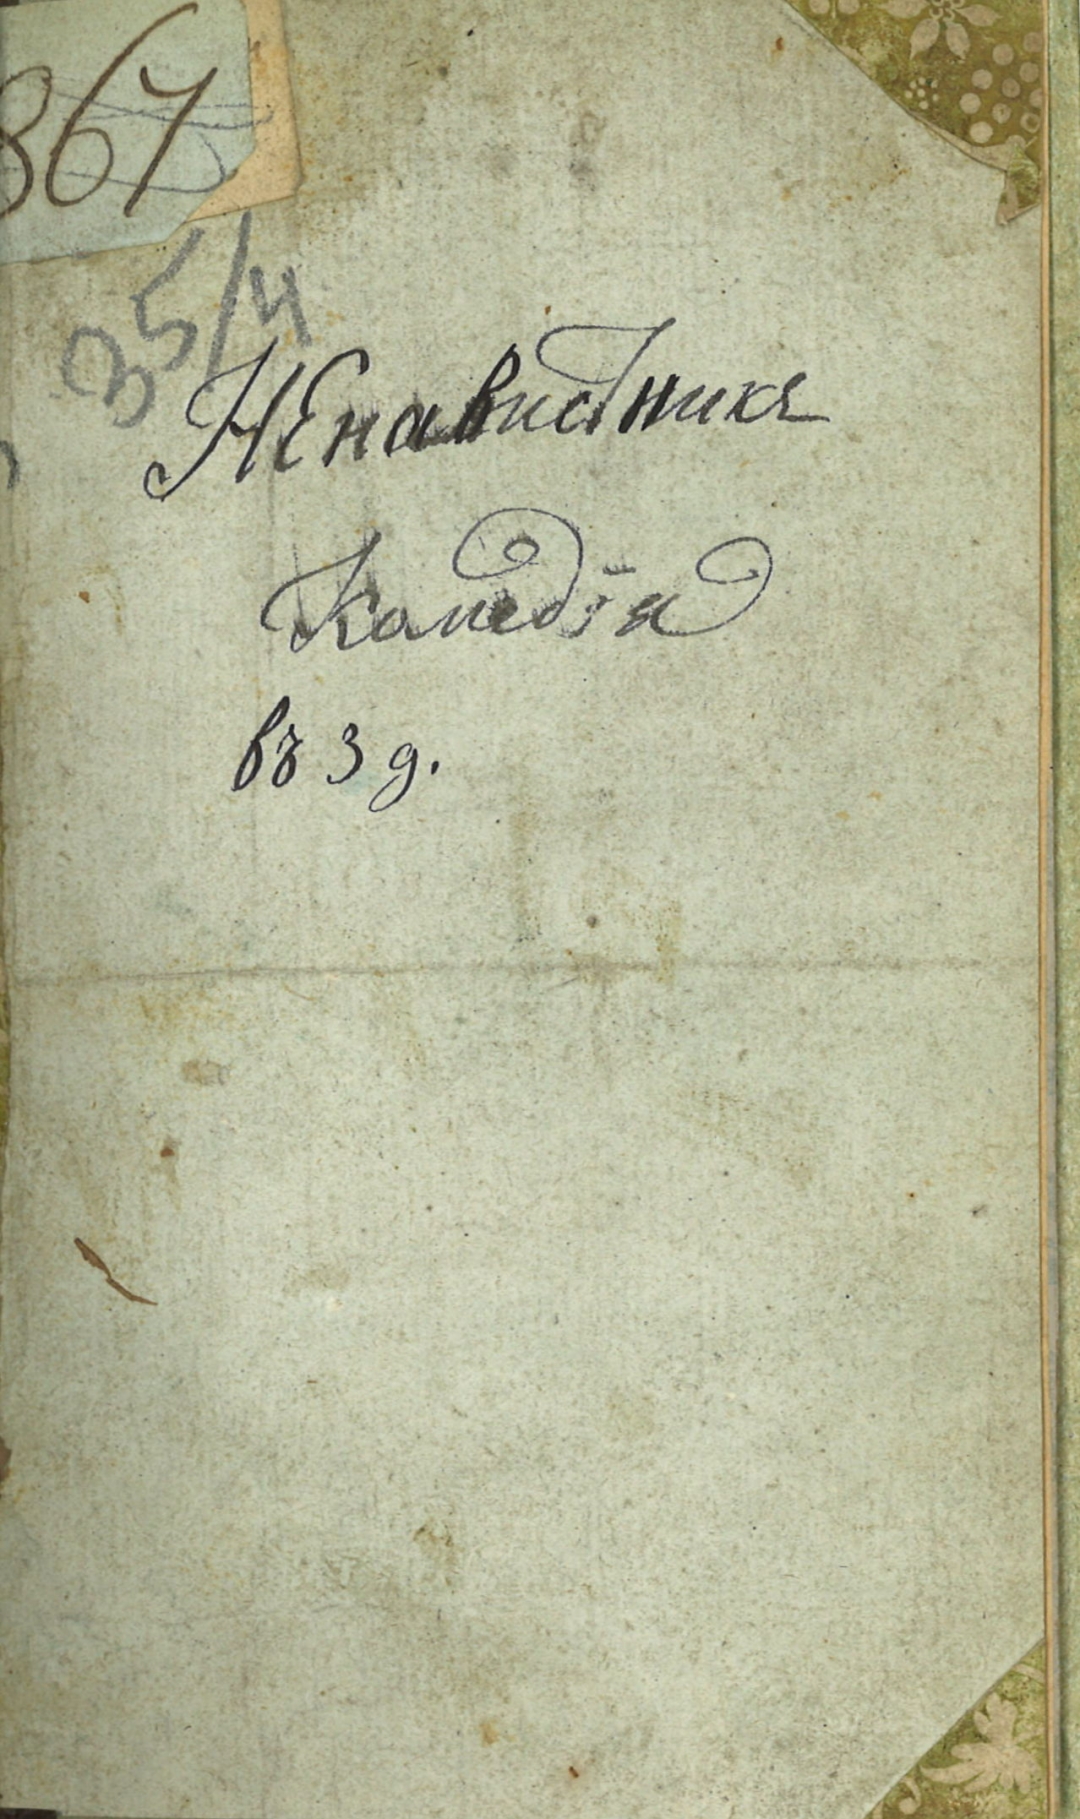 867
35/4
Ненавистникъ
Комедія
въ 3 д.